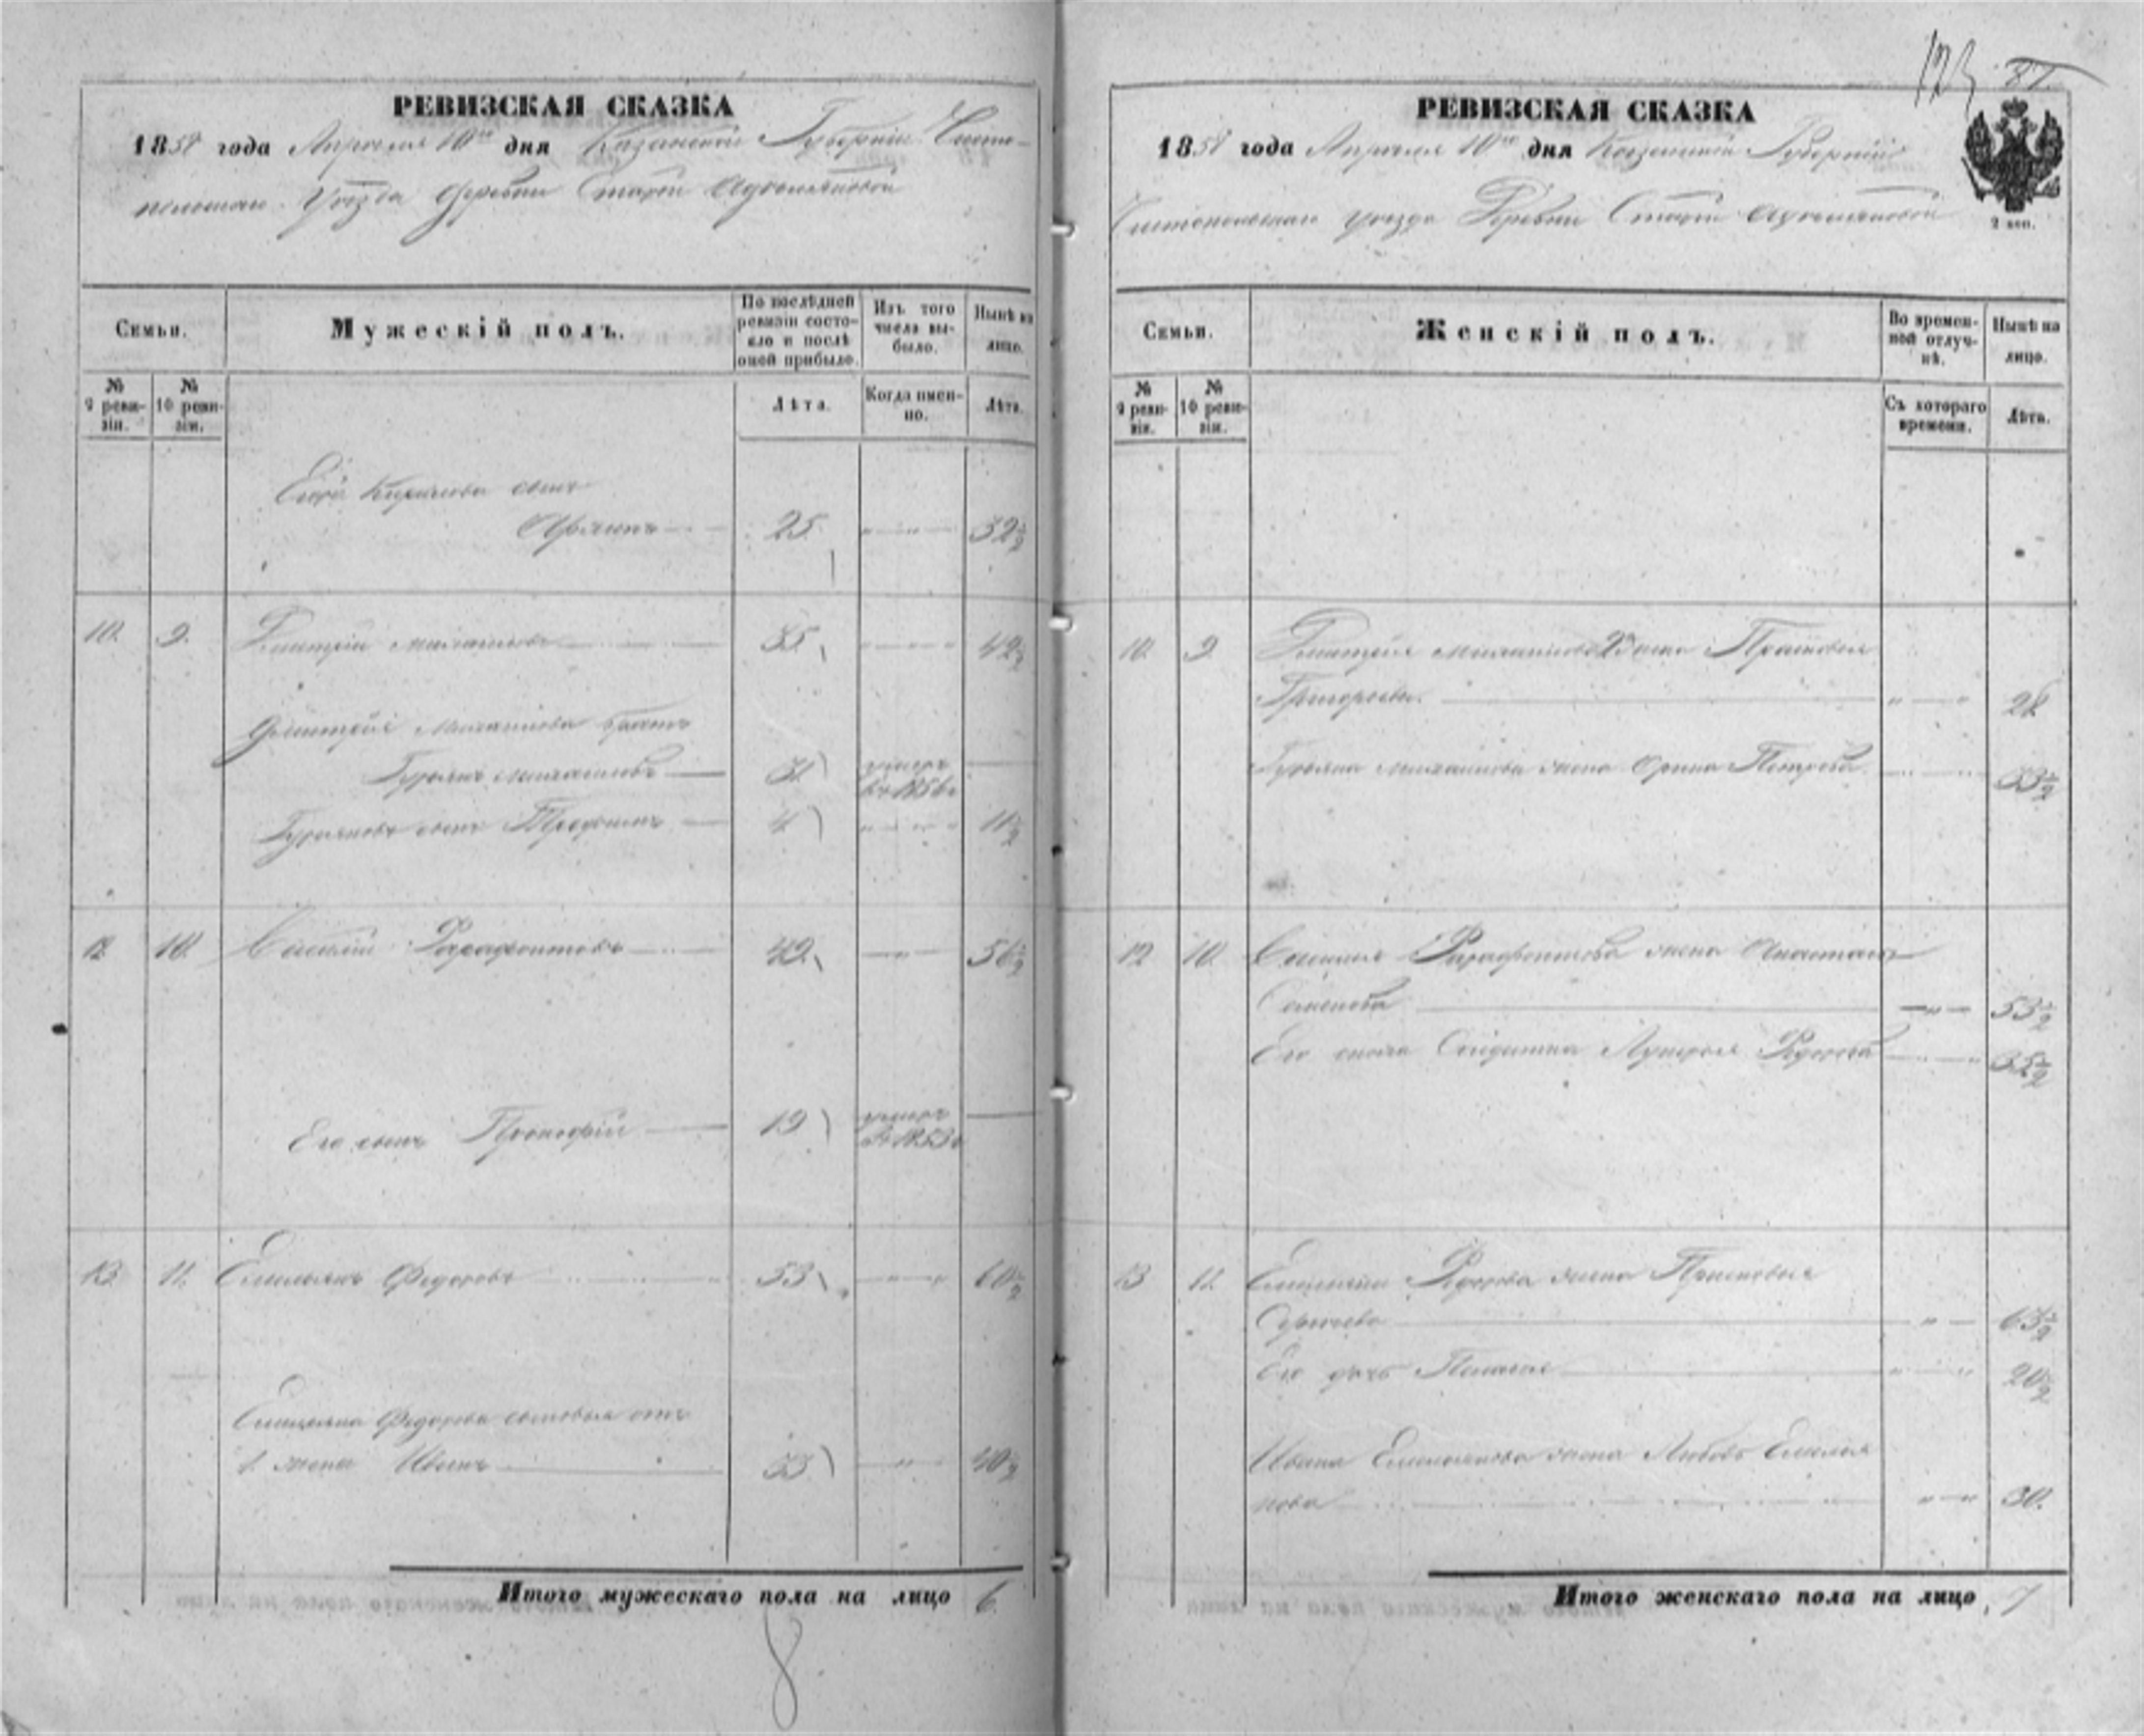 РЕВИЗСКАЯ СКАЗКА
1858 года Апреля 10го дня Казанской Губернии Чисто-
польскаго Уезда Деревни Старой
Семьи.
Мужескій полъ.
По послѣдней ревизіи состояло и послѣ оней прибыло.
Изъ того числа выбыло.
Нынѣ на лицо.
№ 9 ревизіи.
№ 10 ревизіи.
Лѣта.
Когда имен-но.
Лѣта.
сынъ
25 32½
10. 9. Дмитрій Михайловъ 35 42½
Дмитрія Михайлова братъ
Гурьянъ Михайловъ умеръ въ 1856
Гурьяновъ сынъ 4 11½
12 10. Василій Фарафонтовъ 49 56½
Его сынъ Прокофій 19 умеръ въ 1853
13 11. Емельянъ Федоровъ 53 60½
Емельяна Федорова сыновья отъ
1 жены Иванъ 33 40½
Итого мужескаго пола на лицо 6
8
123 81
РЕВИЗСКАЯ СКАЗКА
1858 года Апреля 10го дня Казанской Губерніи
Чистопольскаго уезда Деревни Старой
2 коп.
Семьи.
Женскій полъ.
Во времен-ной отлуч-кѣ.
Нынѣ на лицо.
№ 9 реви-зіи.
№ 10 реви-зіи.
Съ котораго времени.
Лѣта.
10. 9. Дмитрія Михайлова жена Прасковья
Григорьева 28
Гурьяна Михайлова жена Орина Петрова 33½
12 10. Василья Фарафонтова жена Анастасья
Семенова 53½
Его сноха Солдатка Лукерья Федорова 35½
13 11. Емельяна Федорова жена Прасковья
Сергеева 63½
Его дочь Пелагея 20½
Ивана Емельянова жена Любовь Емелья
нова 30.
Итого женскаго пола на лицо, 7